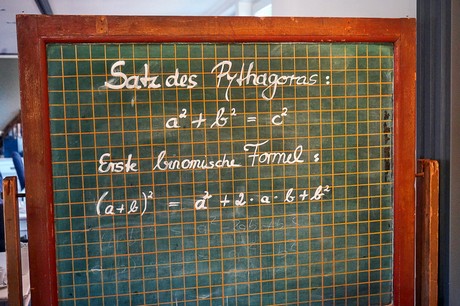 Satz des Pythagoras:
a² + b² = c²
Erste binomische Formel:
(a+b)² = a² + 2·a·b + b²